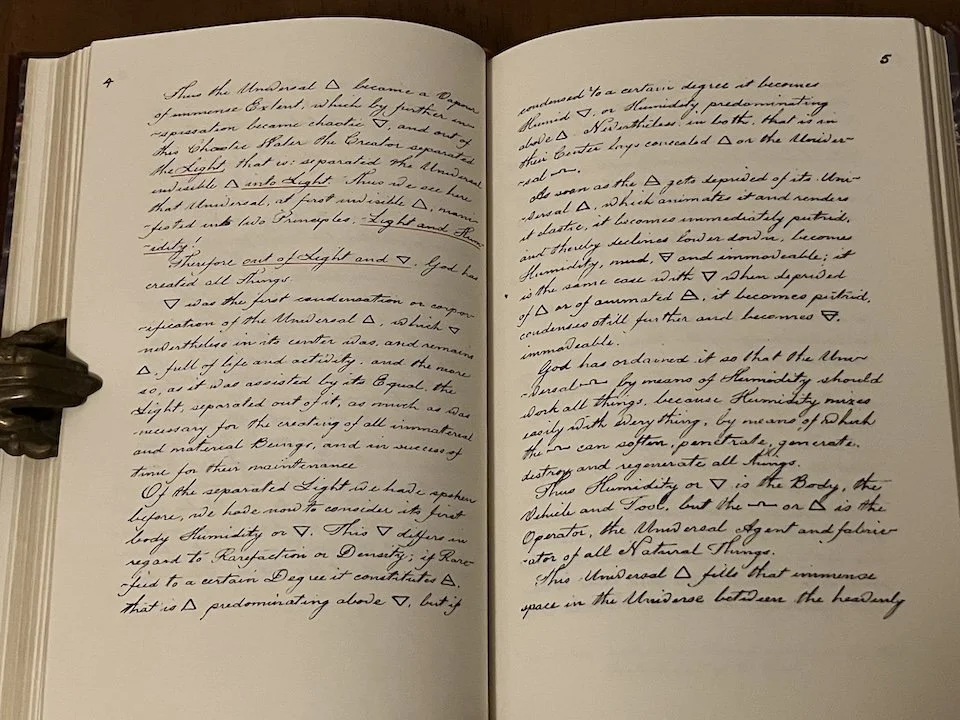 4
Thus the Universal △ became a Vapour
of immense Extent, which by further in-
-spissation became chaotic ▽, and out of
this Chaotic Water the Creator separated
the Light, that is: separated the Universal
invisible △ into Light. Thus we see here
that Universal, at first invisible △, mani-
-fested into two Principles, Light and Hum-
-idity!
Therefore out of Light and ▽, God has
created all Things.
▽ was the first condensation or corpor-
-ification of the Universal △, which ▽
nevertheless in its center was, and remains
△, full of life and activity, and the more
so, as it was assisted by its Equal, the
Light, separated out of it, as much as was
necessary for the creating of all immaterial
and material Beings, and in success of
time for their maintenance
Of the separated Light we have spoken
before, we have now to consider its first
body Humidity or ▽. This ▽ differs in
regard to Rarefaction or Density; if Rare-
-fied to a certain Degree it constitutes 🜁,
that is △ predominating above ▽, but if
5
condensed to a certain degree it becomes
Humid ▽, or Humidity predominating
above △. Nevertheless, in both, that is in
their Center lays concealed △ or the Univer-
-sal
As soon as the 🜁 gets deprived of its Uni-
-versal △, which animates it and renders
it elastic, it becomes immediately putrid,
and thereby declines lower down, becomes
Humidity, mud, 🜃 and immoveable; it
is the same case with ▽ when deprived
of △ or of animated 🜁, it becomes putrid,
condenses still further and becomes 🜃.
immoveable.
God has ordained it so that the Uni-
-versal by means of Humidity should
work all things, because Humidity mixes
easily with everything, by means of which
the can soften, penetrate, generate,
destroy and regenerate all things.
Thus Humidity or ▽ is the Body, the
Vehicle and Tool, but the or △ is the
Operator, the Universal Agent and fabric-
-ator of all Natural Things.
This Universal △ fills that immense
space in the Universe between the heavenly